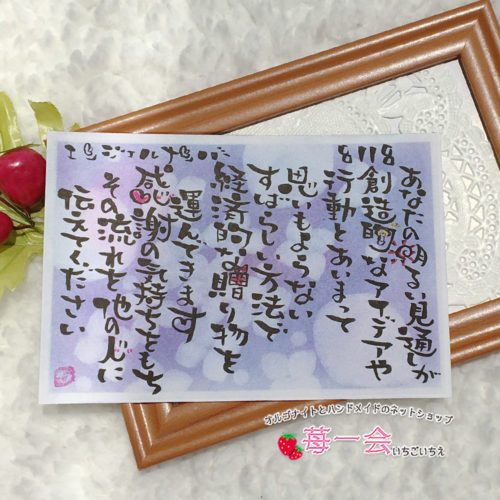 エンジェルナンバー
8118
あなたの明るい見通しが
創造的なアイデアや
行動とあいまって
思いもよらない
すばらしい方法で
経済的な贈り物を
運んできます
感謝の気持ちをもち
その流れを他の人に
伝えてください
オルゴナイトとハンドメイドのネットショップ
苺一会 いちごいちえ